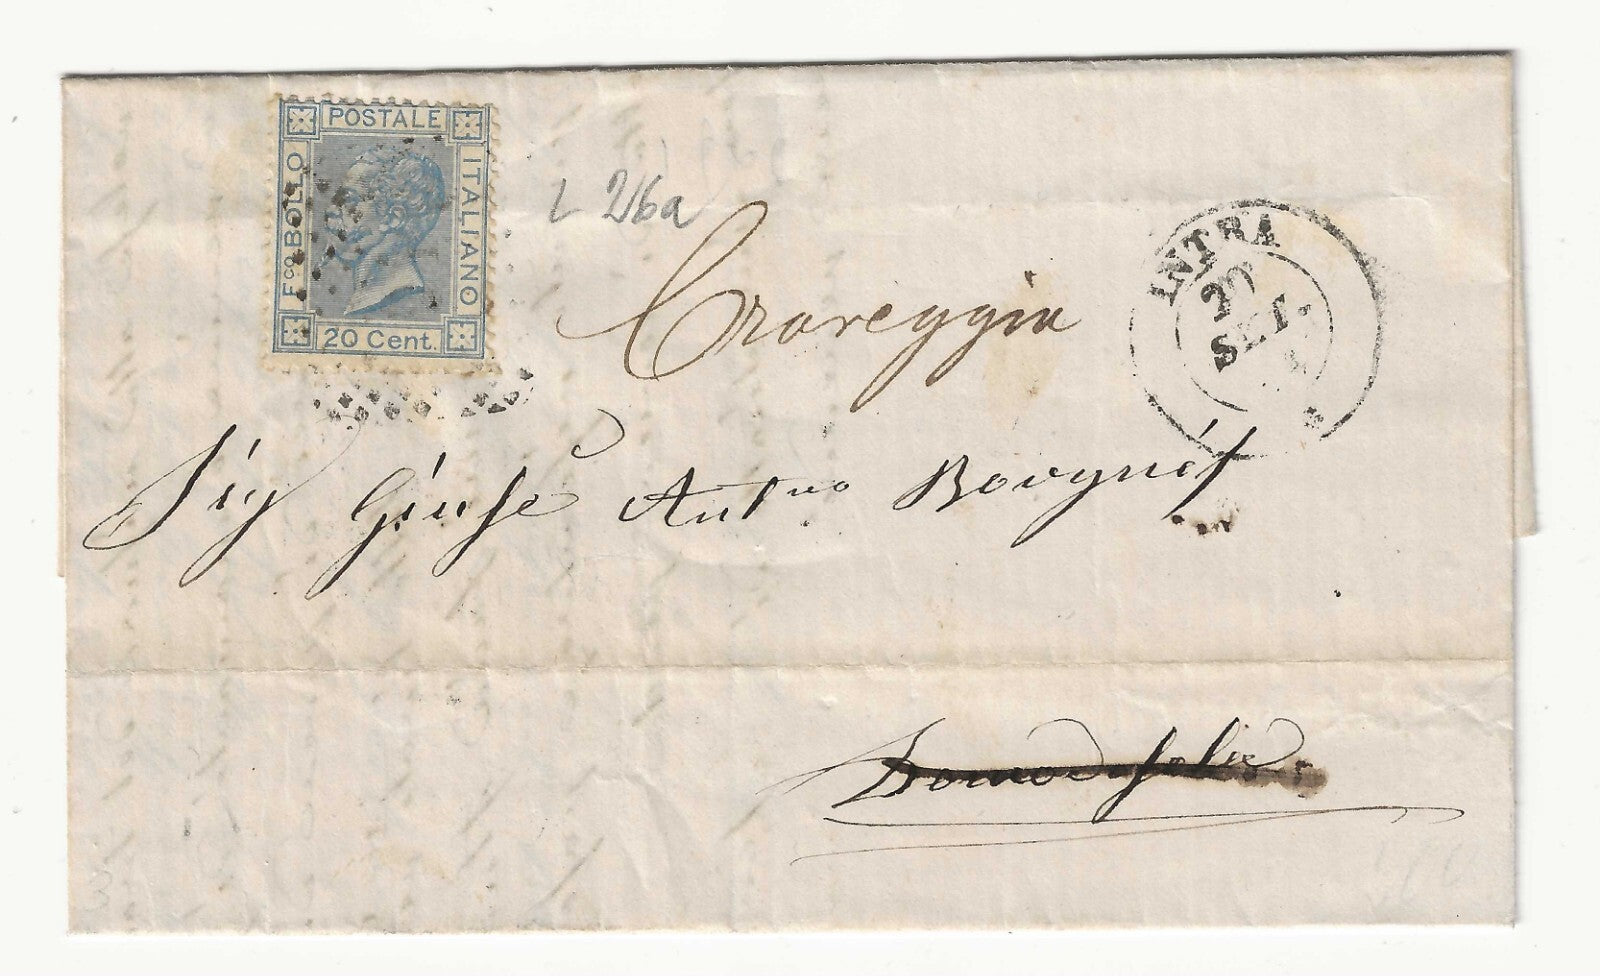 POSTALE
F.co BOLLO
ITALIANO
20 Cent.
L 26a
INTRA
SET.
Craveggia
Sig Giuse Ant.nio
Domodossola